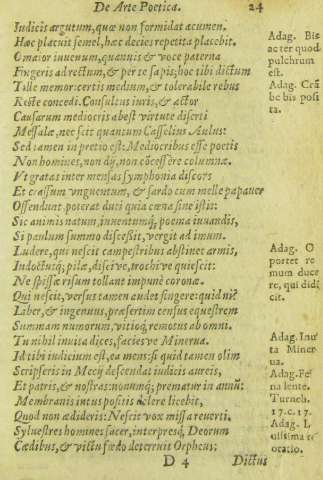 De Arte Poetica. 24
Iudicis argutum, quæ non formidat acumen.
Hæc placuit semel, hæc decies repetita placebit.
O maior iuuenum, quanuis & voce paterna
Fingeris ad rectum, & per te sapis; hoc tibi dictum
Tolle memor: certis medium, & tolerabile rebus
Recte concedi. Consultus iuris, & actor
Causarum mediocris abest virtute diserti
Messalæ, nec scit quantum Cassellius Aulus:
Sed tamen in pretio est: Mediocribus esse poetis
Non homines, non dij, non cōcessere columnæ.
Vt gratas inter mensas symphonia discors
Et crassum vnguentum, & sardo cum melle papauer
Offendunt. poterat duci quia cœna sine istis:
Sic animis natum, inuentumq́; poema iuuandis,
Si paulum summo discessit, vergit ad imum.
Ludere, qui nescit campestribus abstinet armis,
Indoctusq́; pilæ, disciue, trochiue quiescit:
Ne spissæ risum tollant impunè coronæ.
Qui nescit, versus tamen audet fingere: quid ni?
Liber, & ingenuus, præsertim census equestrem
Summam numorum, vitioq́; remotus ab omni.
Tu nihil inuita dices, faciesve Minerua.
Id tibi iudicium est, ea mens: si quid tamen olim
Scripseris in Mecij descendat iudicis aureis,
Et patris, & nostras: nonumq́; prematur in annū:
Membranis intus positis delere licebit,
Quod non ædideris: Nescit vox missa reuerti.
Syluestres homines sacer, interpresq́; Deorum
Cædibus, & victu fœdo deterruit Orpheus;
D 4 Dictus
Adag. Bis
ac ter quod
pulchrum
est.
Adag.
be bis posi
ta.
Adag. O
portet re
mum duce
re, qui didi
cit.
Adag. Inui
ta Miner-
ua.
Adag. Fe
na lente.
Turneb.
17. c. 17.
Adag.
oratio.